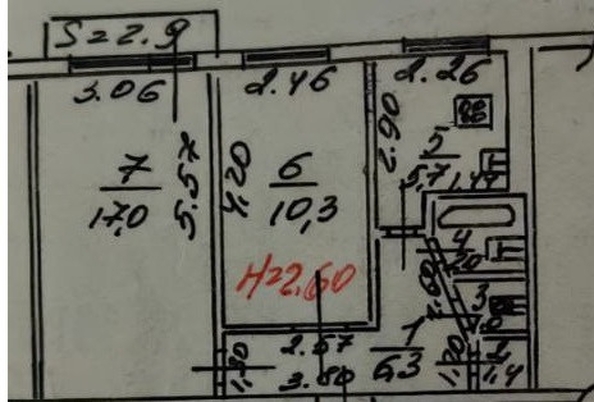 S=2.9
3.06
2.46
2.26
5.57
4.20
2.90
7
17,0
6
10,3
5
5,7
H=2.60
4
2,0
3
1
6,3
2.57
3.80
1.30
1.20
2
1,4